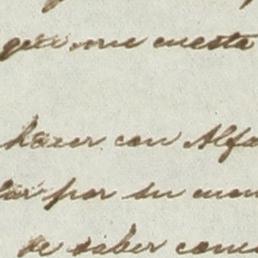 que me cuesta
hazer con Alfo
por su
se saber como